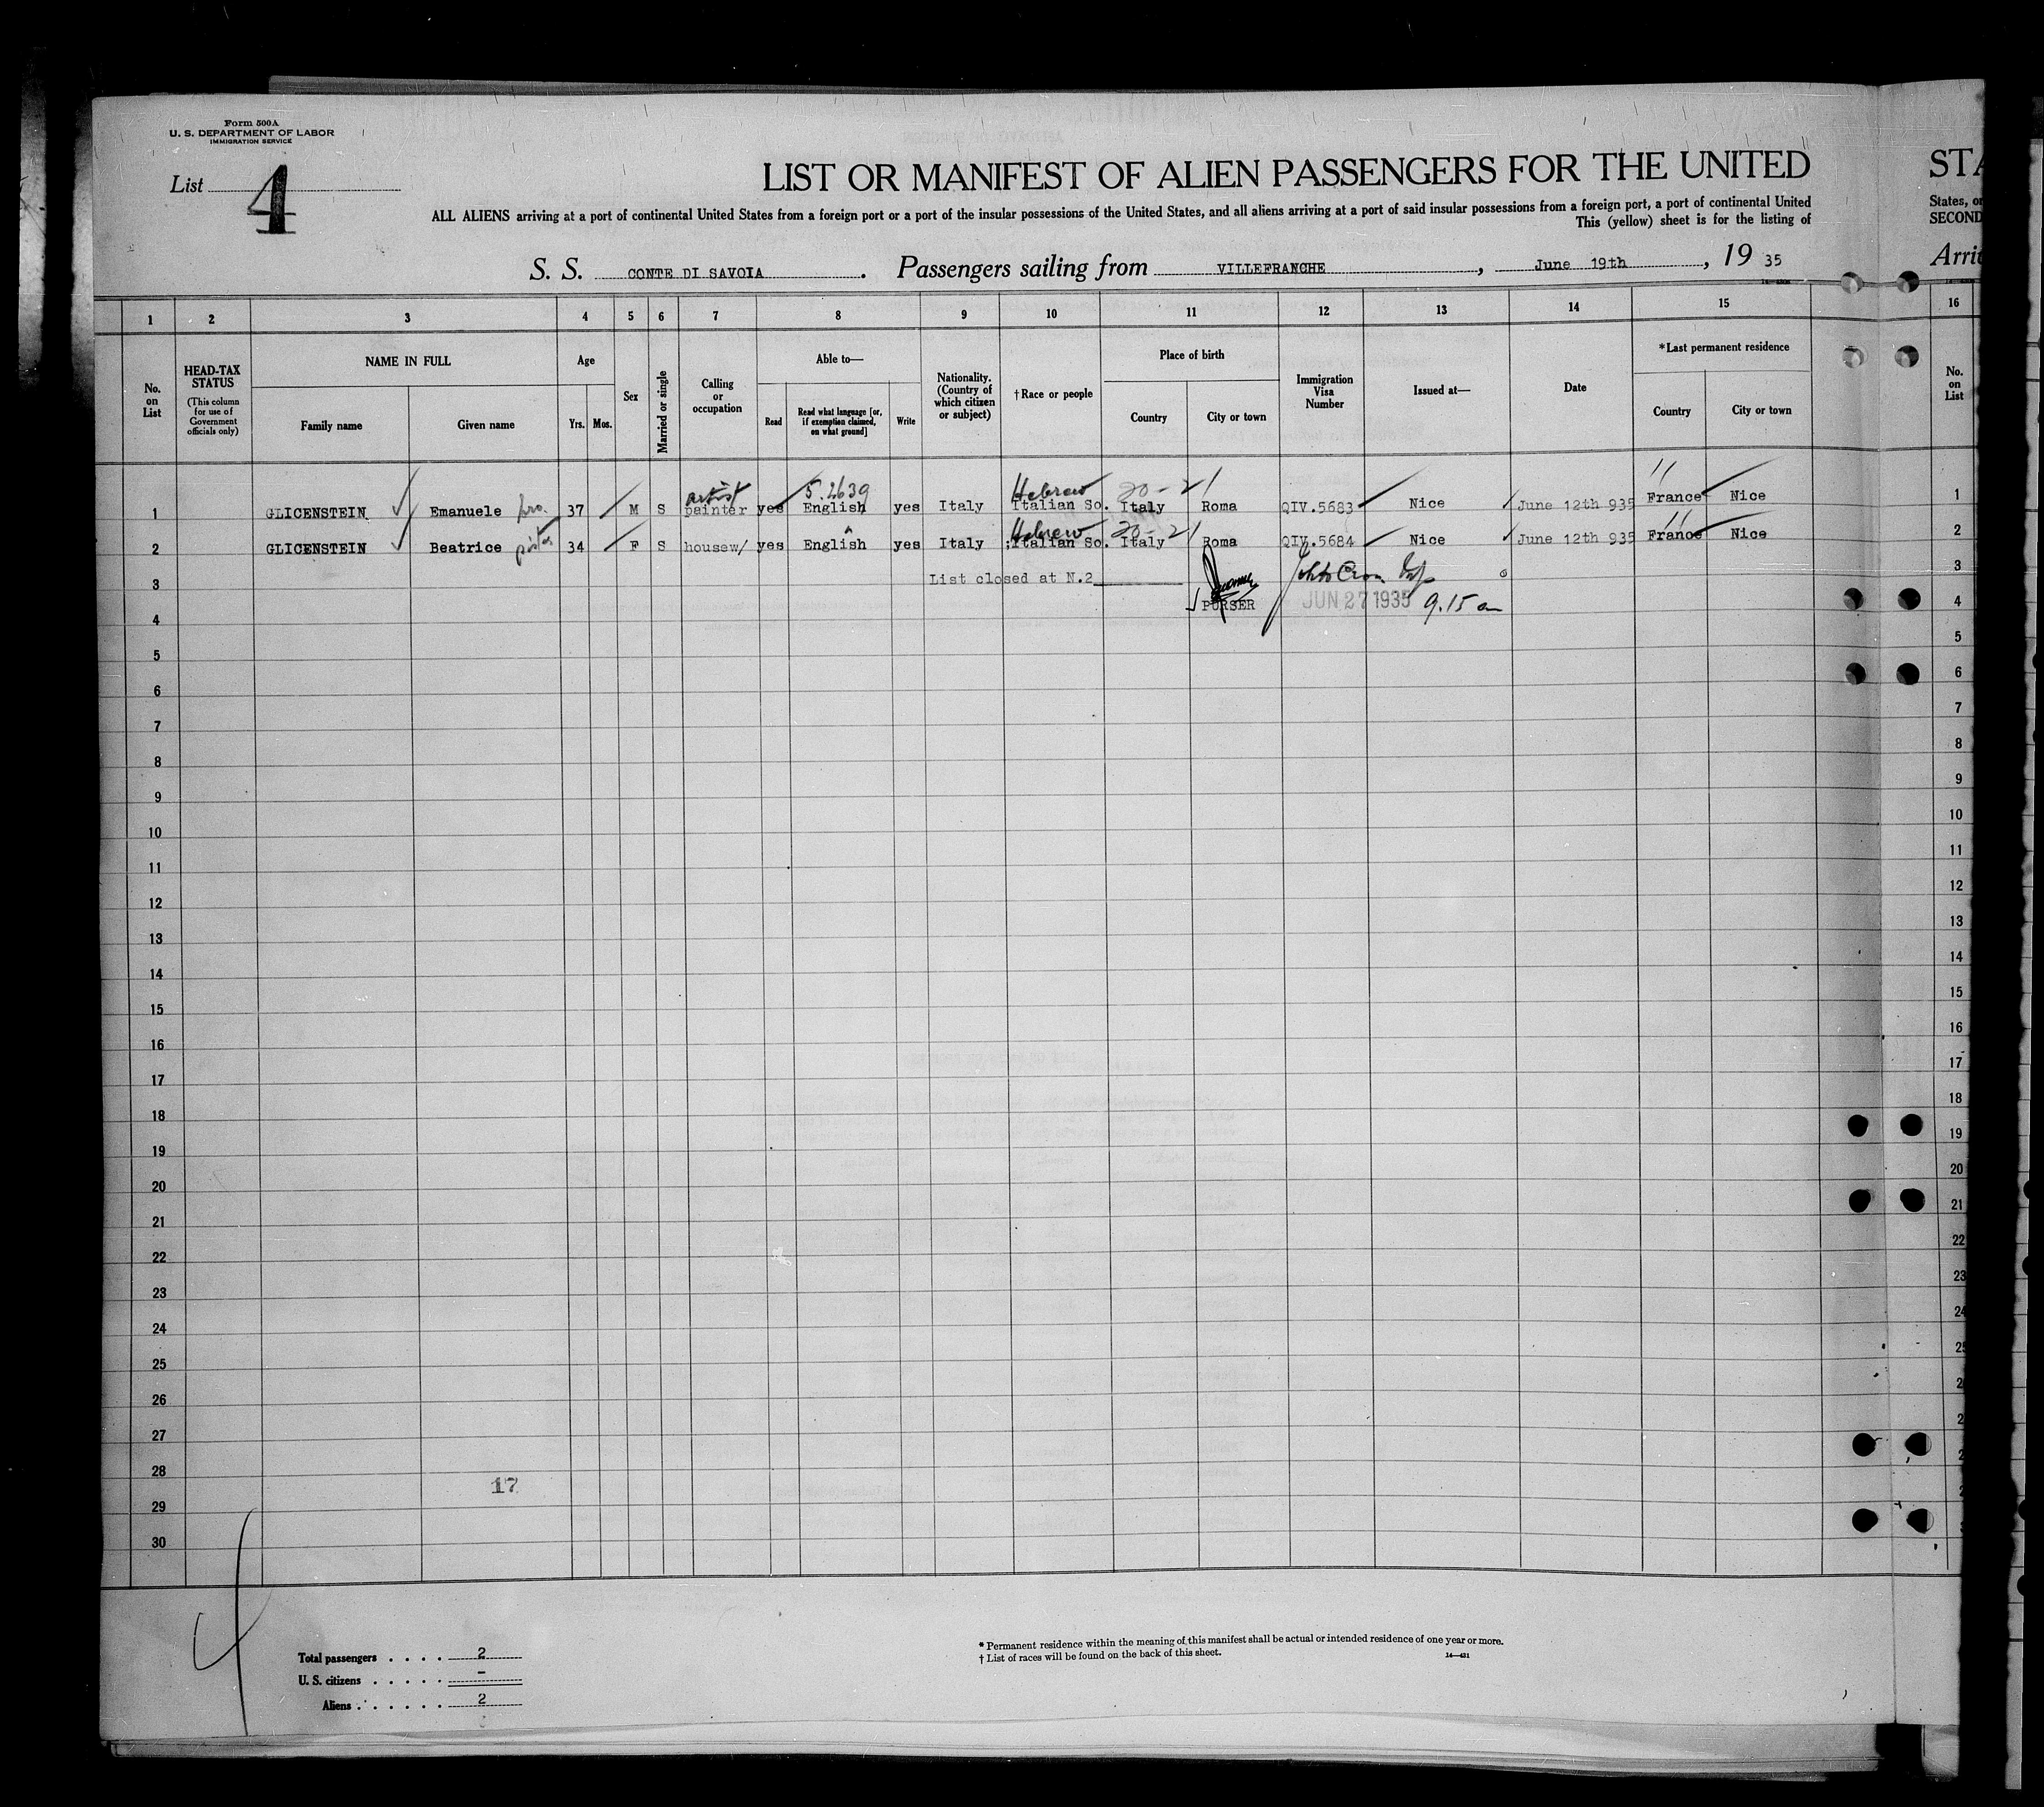 Form 500A
U. S. DEPARTMENT OF LABOR
IMMIGRATION SERVICE
List 4
LIST OR MANIFEST OF ALIEN PASSENGERS FOR THE UNITED
STA
ALL ALIENS arriving at a port of continental United States from a foreign port or a port of the insular possessions of the United States, and all aliens arriving at a port of said insular possessions from a foreign port, a port of continental United
States, or
This (yellow) sheet is for the listing of
SECOND
S. S. CONTE DI SAVOIA. Passengers sailing from VILLEFRANCHE, June 19th, 19 35
Arri
1 2 3 4 5 6 7 8 9 10 11 12 13 14 15 16
No. on List
HEAD-TAX STATUS
(This column for use of Government officials only)
NAME IN FULL
Family name
Given name
Age
Yrs.
Mos.
Sex
Married or single
Calling or occupation
Able to—
Read
Read what language [or, if exemption claimed, on what ground]
Write
Nationality. (Country of which citizen or subject)
†Race or people
Place of birth
Country
City or town
Immigration Visa Number
Issued at—
Date
*Last permanent residence
Country
City or town
No. on List
artist 5.2639 Hebrew 20-21 11
1 GLICENSTEIN Emanuele pro. 37 M S painter yes English yes Italy Italian So. Italy Roma QIV.5683 Nice June 12th 935 France Nice 1
Hebrew 20-21 11
2 GLICENSTEIN Beatrice 34 F S housew/ yes English yes Italy Italian So. Italy Roma QIV.5684 Nice June 12th 935 France Nice 2
3 List closed at N.2 3
PURSER JUN 27 1935 9.15 am
4 4
5 5
6 6
7 7
8 8
9 9
10 10
11 11
12 12
13 13
14 14
15 15
16 16
17 17
18 18
19 19
20 20
21 21
22 22
23 23
24 24
25 25
26 2
27 2
28 2
17
29
30
4
Total passengers . . . . 2
U. S. citizens . . . . . –
Aliens . . . . . . 2
* Permanent residence within the meaning of this manifest shall be actual or intended residence of one year or more.
† List of races will be found on the back of this sheet.
14—421